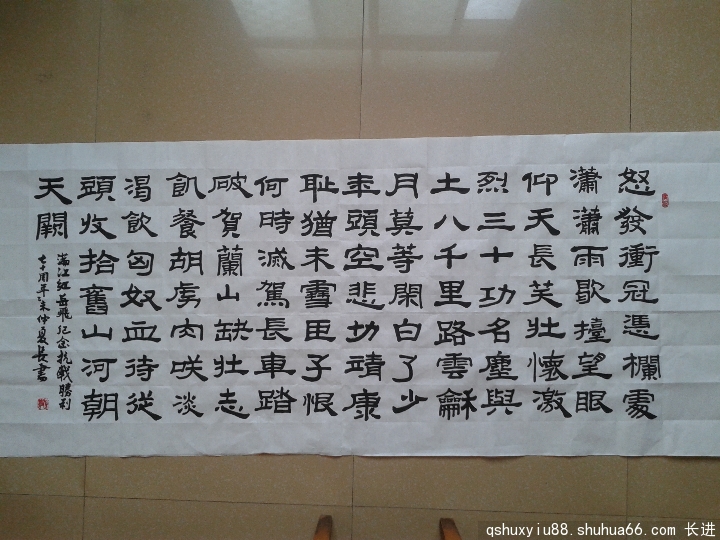 怒發衝冠憑欄處
瀟瀟雨歇擡望眼
仰天長笑壯懷激
烈三十功名塵與
土八千里路雲龢
月莫等閑白了少
年頭空悲切靖康
恥猶未雪臣子恨
何時滅駕長車踏
破賀蘭山缺壯志
飢餐胡虜肉咲淡
渴飲匈奴血待從
頭收拾舊山河朝
天闕
滿江紅岳飛紀念抗戰勝利
七十周年乙未仲夏長書
qshuxyiu88.shuhua66.com 长进